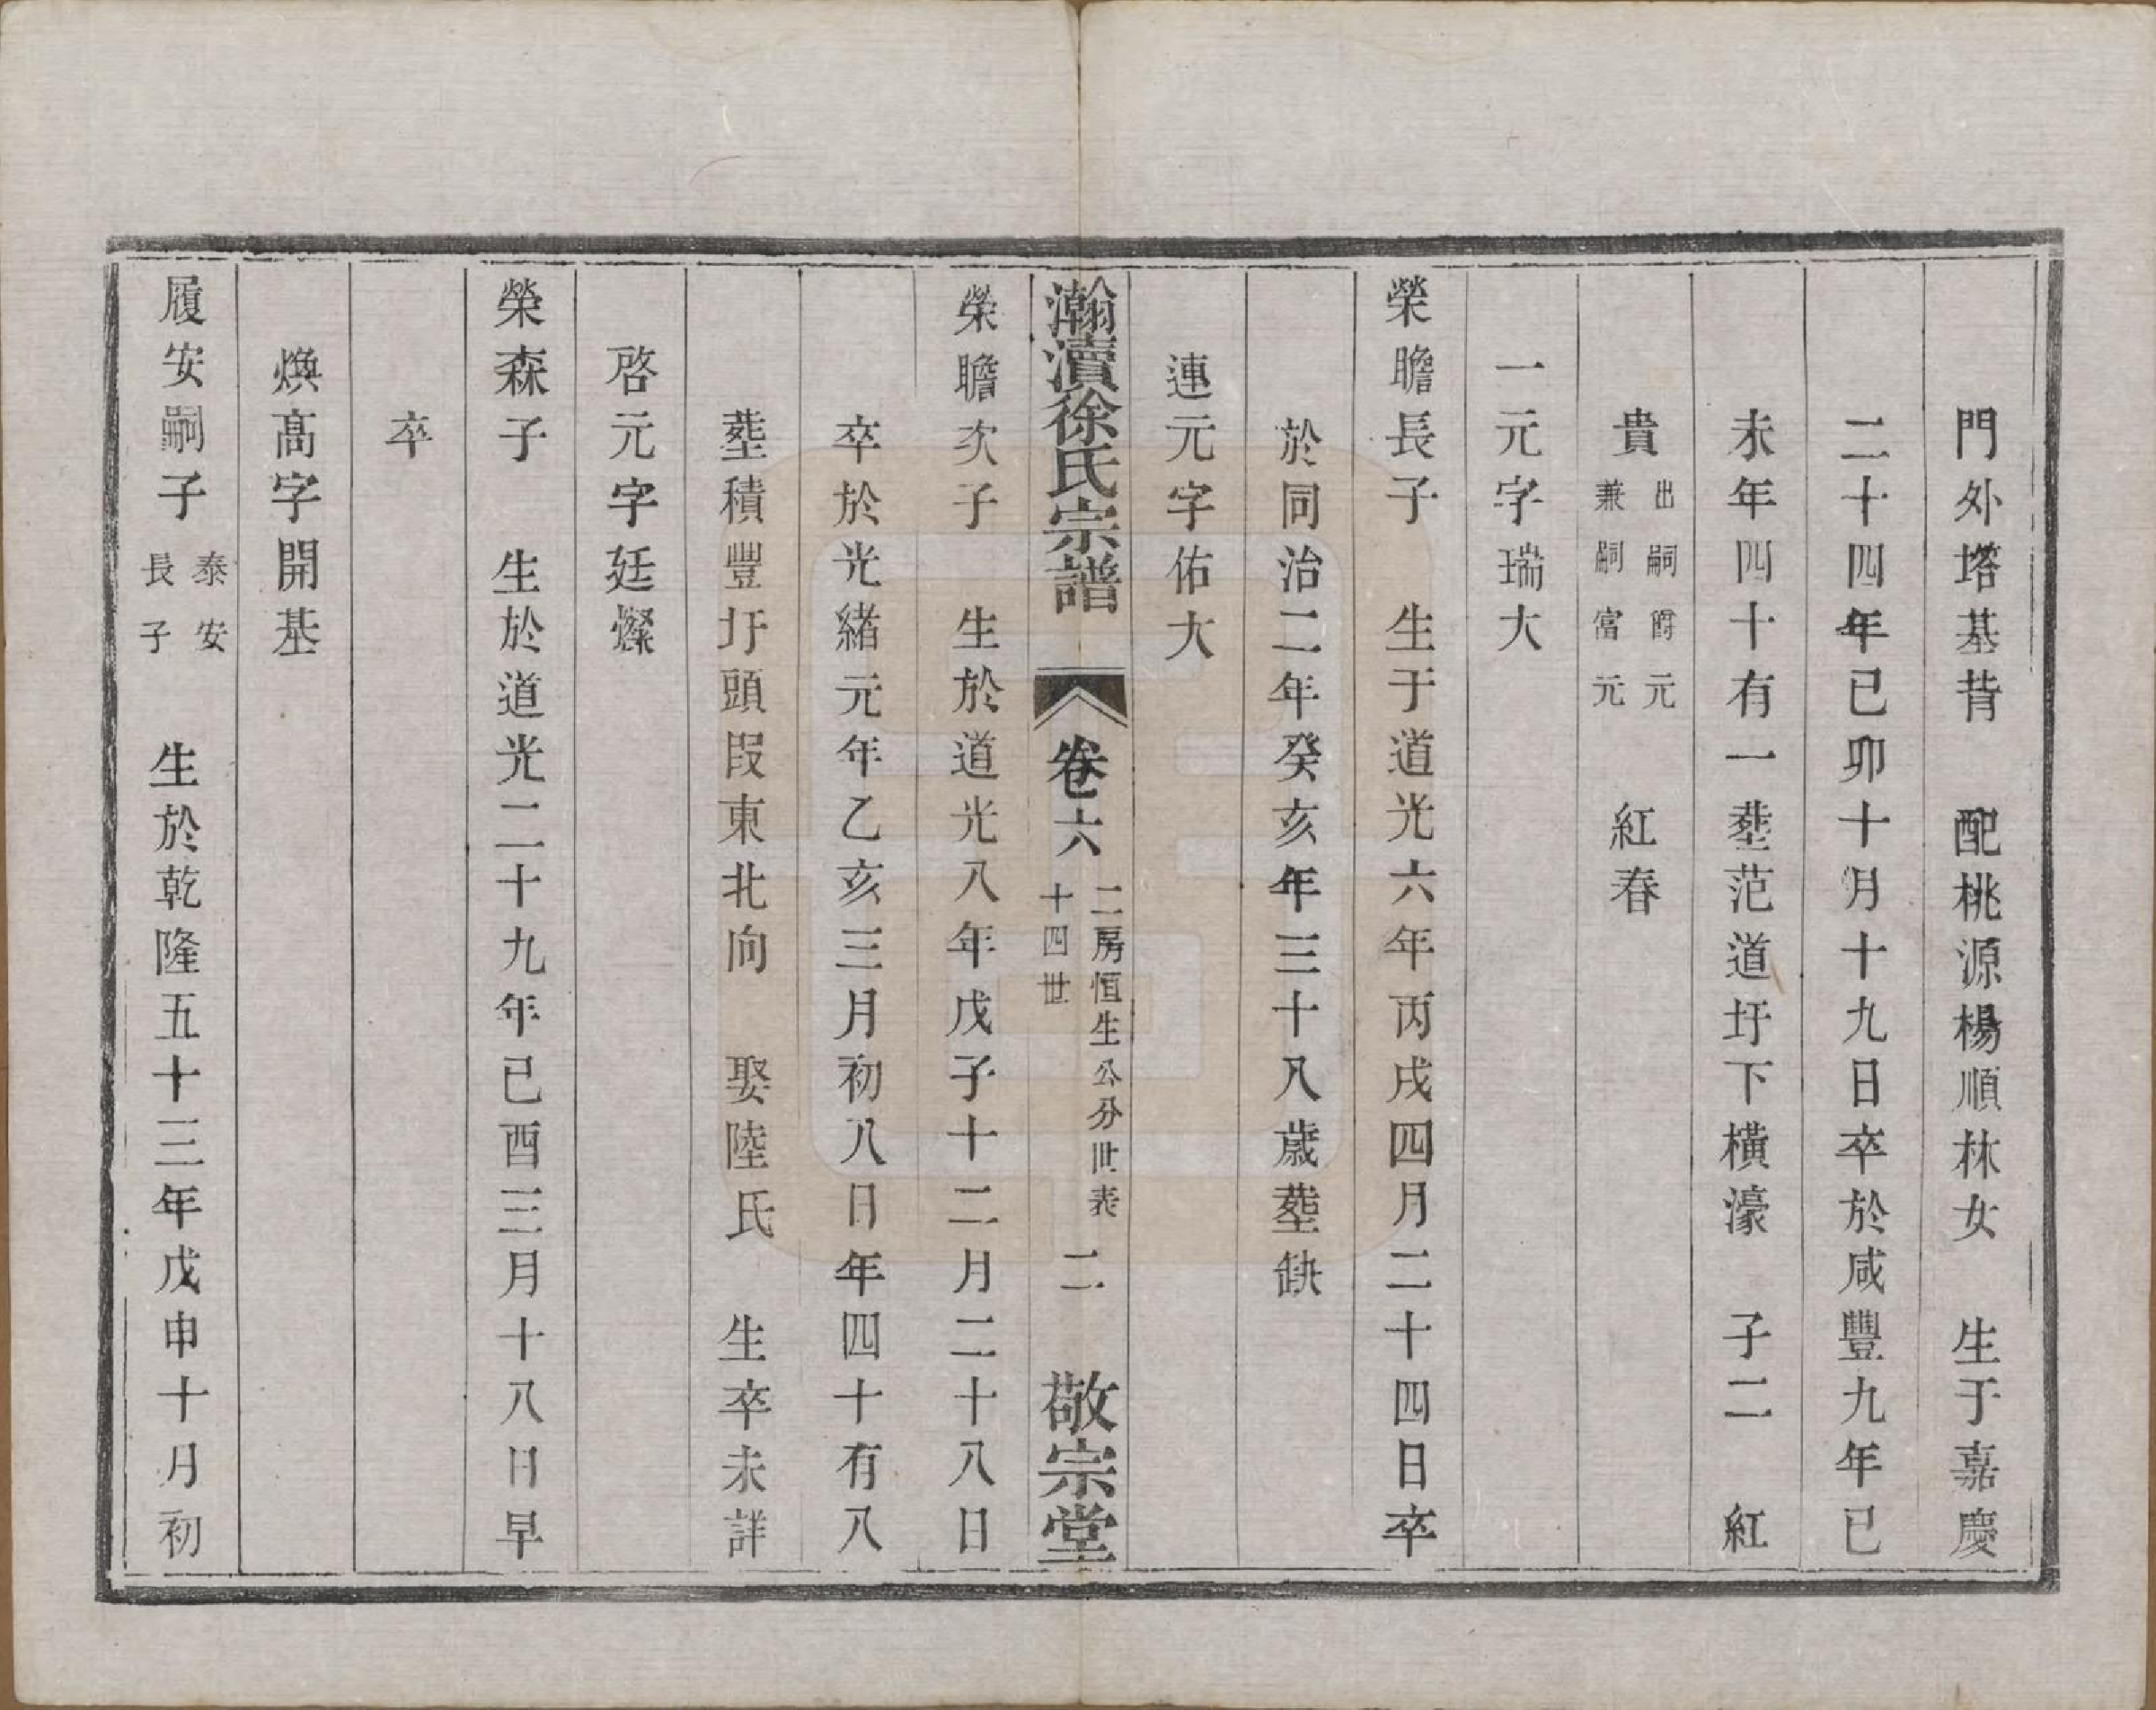 門外塔基背　配桃源楊順林女　生于嘉慶
二十四年己卯十月十九日卒於咸豐九年己
未年四十有一塟范道圩下橫濠　子二　紅
貴出嗣爵元兼嗣富元　紅春
一元字瑞大
榮瞻長子　生于道光六年丙戌四月二十四日卒
於同治二年癸亥年三十八歲塟缺
連元字佑大
瀚瀆徐氏宗譜　卷六　二房恒生公分世表十四世　二　敬宗堂
榮瞻次子　生於道光八年戊子十二月二十八日
卒於光緒元年乙亥三月初八日年四十有八
塟積豐圩頭叚東北向　娶陸氏　生卒未詳
啓元字廷燦
榮森子　生於道光二十九年己酉三月十八日早
卒
煥高字開基
履安嗣子泰安長子　生於乾隆五十三年戊申十月初